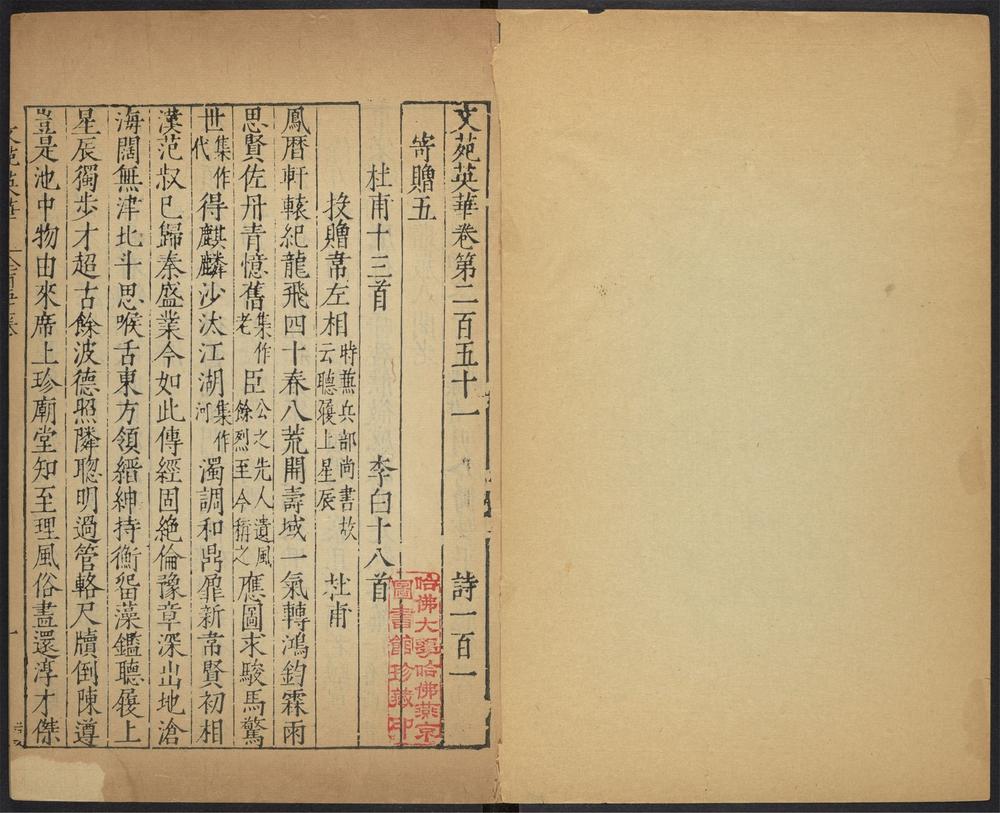 文苑英華卷第二百五十一 詩一百一
寄贈五
杜甫十三首 李白十八首
投贈韋左相時兼兵部尚書故云聽履上星辰 杜甫
鳳曆軒轅紀龍飛四十春八荒開壽域一氣轉鴻鈞霖雨
思賢佐丹青憶舊集作老臣公之先人遺風餘烈至今稱之應圖求駿馬驚
世集作代得麒麟沙汰江湖集作河濁調和鼎鼐新韋賢初相
漢范叔已歸秦盛業今如此傳經固絶倫豫章深出地滄
海闊無津北斗思喉舌東方領縉紳持衡留藻鑑聽履上
星辰獨步才超古餘波德照隣聰明過管輅尺牘倒陳遵
豈是池中物由來席上珍廟堂知至理風俗盡還淳才傑
哈佛大學哈佛燕京
圖書館珍藏印